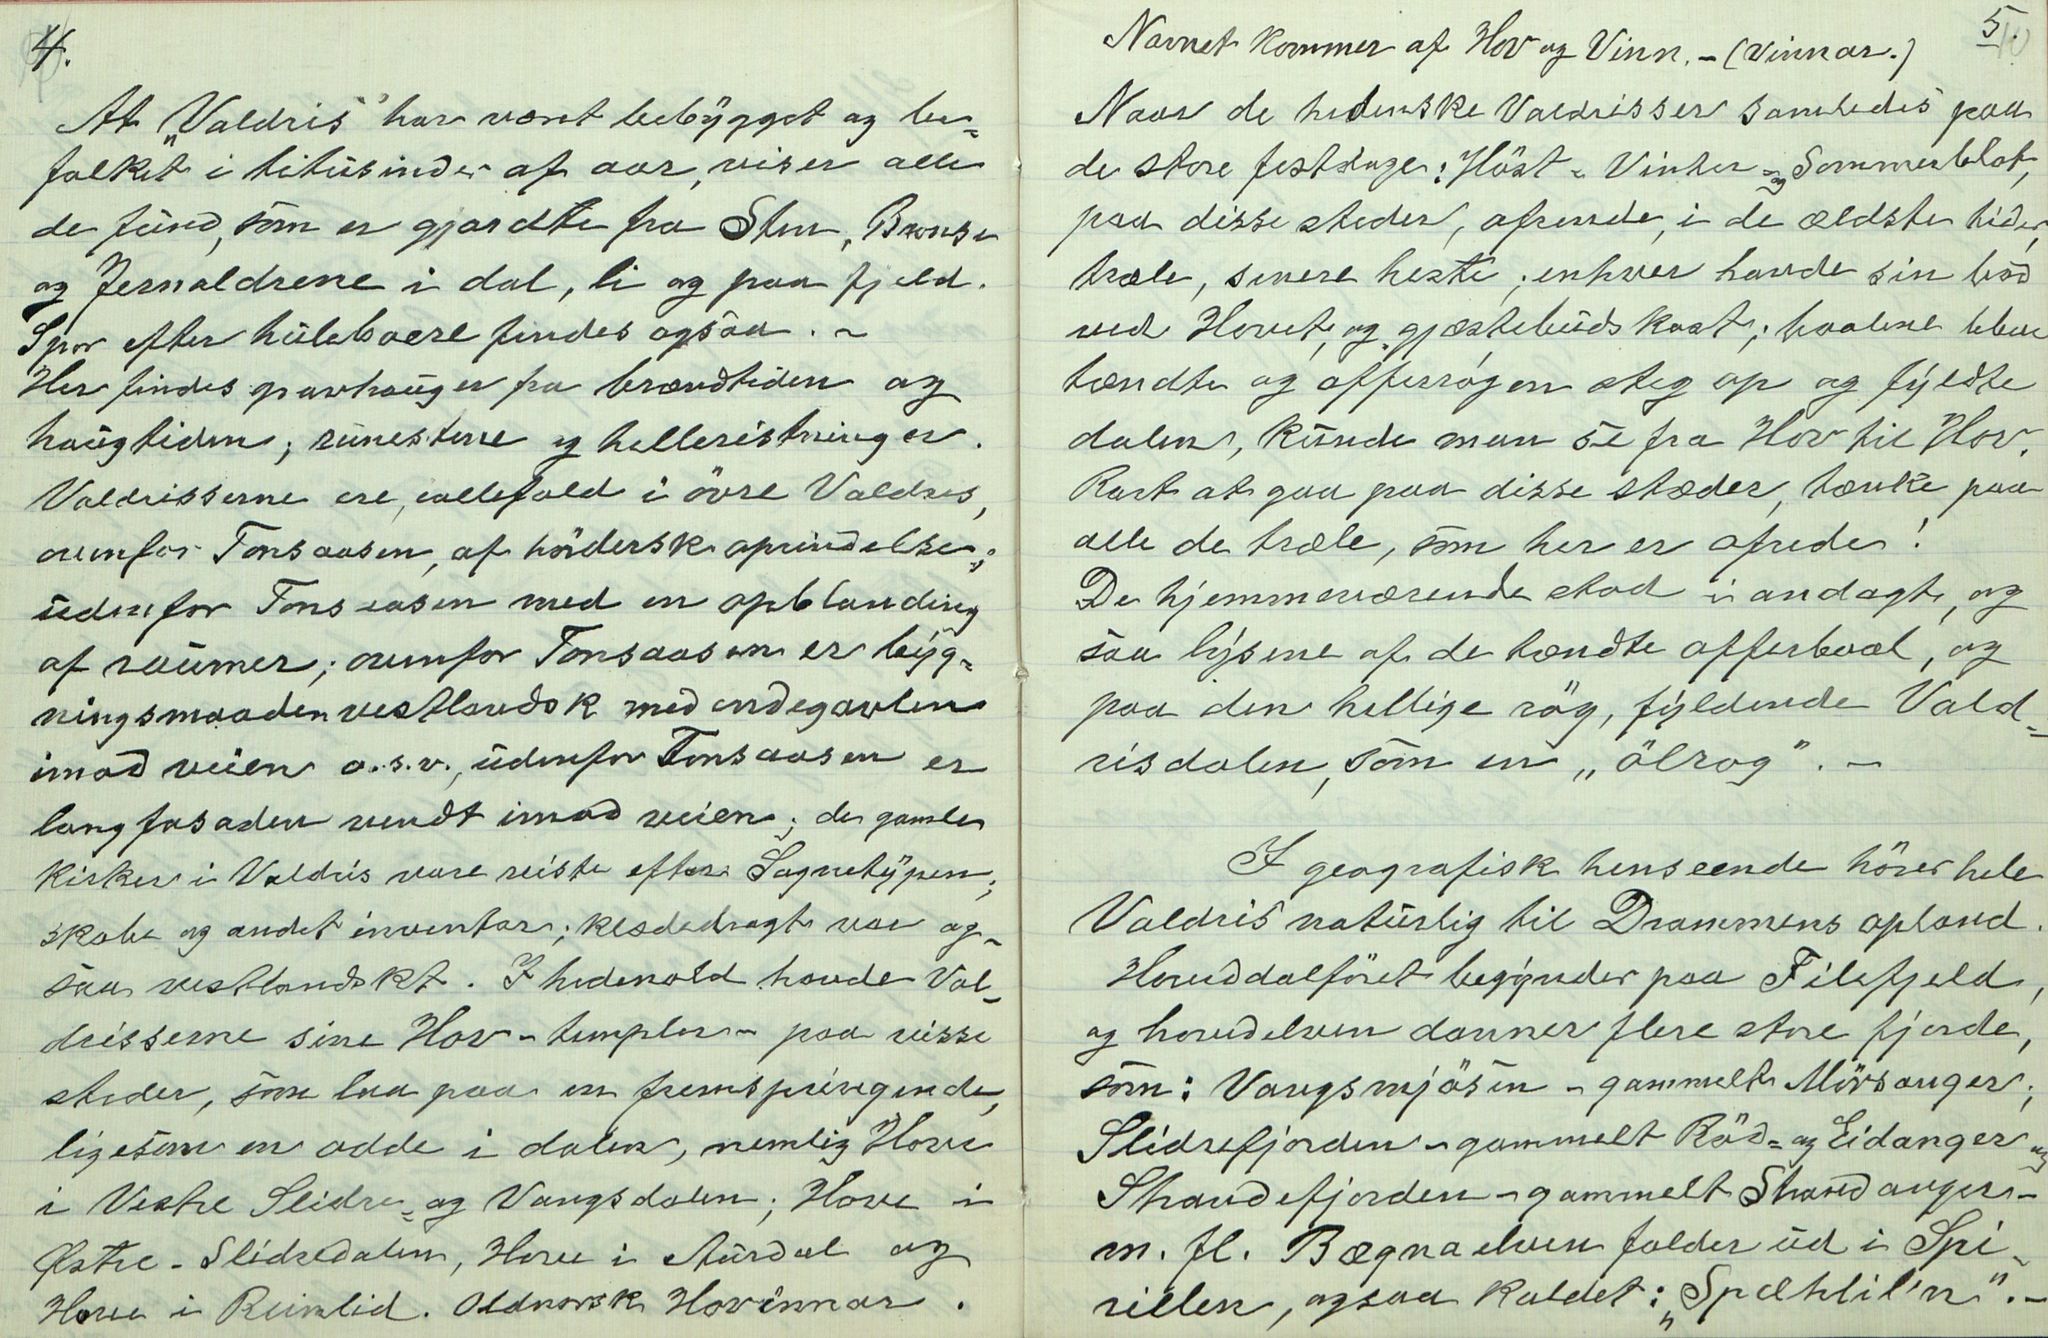 4.
At „Valdris" har været bebygget og be-
folket i titusinder af aar, viser alle
de fund, som er gjordte fra Sten, Bronse
og Jernaldrene i dal, li og paa fjeld.
Spor efter huleboere findes ogsaa. -
Her findes gravhauger fra brændtiden og
haugtiden; runestene og helleristninger.
Valdrisserne ere, iallefald i övre Valdres,
ovenfor Tonsaasen, af hördersk oprindelse;
udenfor Tonsaasen med en opblanding
af raumer; ovenfor Tonsaasen er byg-
ningsmaaden vestlandsk med endegavlen
imod veien o.s.v., udenfor Tonsaasen er
langfasaden vendt imod veien; de gamle
kirker i Valdris vare reiste efter Sognetypen;
skabe og andet inventar; klædedragt var og-
saa vestlandskt. I hedenold havde Val-
drisserne sine Hov - templer - paa visse
steder, som laa paa en fremspringende,
ligesom en odde i dalen, nemlig Hove
i Vestre Slidre- og Vangsdalen; Hove i
Østre-Slidredalen, Hove i Aurdal og
Hove i Reinlid. Oldnorsk Hovinnar.
5.
Navnet kommer af Hov og Vinn. - (Vinnar.)
Naar de hedenske Valdrisser samledes paa
de store festdage: Höst- Vinter- og Sommerblot,
paa disse steder, afrende, i de ældste tider,
træle, senere heste; enhver havde sin bod
ved Hovet, og gjæstebudskost; baalene blev
tændte og offerrögen steg op og fyldte
dalen, kunde man se fra Hov til Hov.
Rart at gaa paa disse stæder, tænke paa
alle de træle, som her er afrede!
De hjemmeværende stod i andagt, og
saa lysene af de tændte offerbaal, og
paa den hellige rög, fyldende Vald-
risdalen, som en „ölrog". -
I geografisk henseende hörer hele
Valdris naturlig til Drammens opland.
Hoveddalföret begynder paa Filefjeld,
og hovedelven danner flere store fjorde,
som: Vangsmjösen - gammelt Mörsanger;
Slidrefjorden - gammelt Röd- og Eidanger og
Strandefjorden - gammelt Strandanger -
m. fl. Bægnaelven falder ud i Spi-
rillen, ogsaa kaldet: „Spælilil'n". -